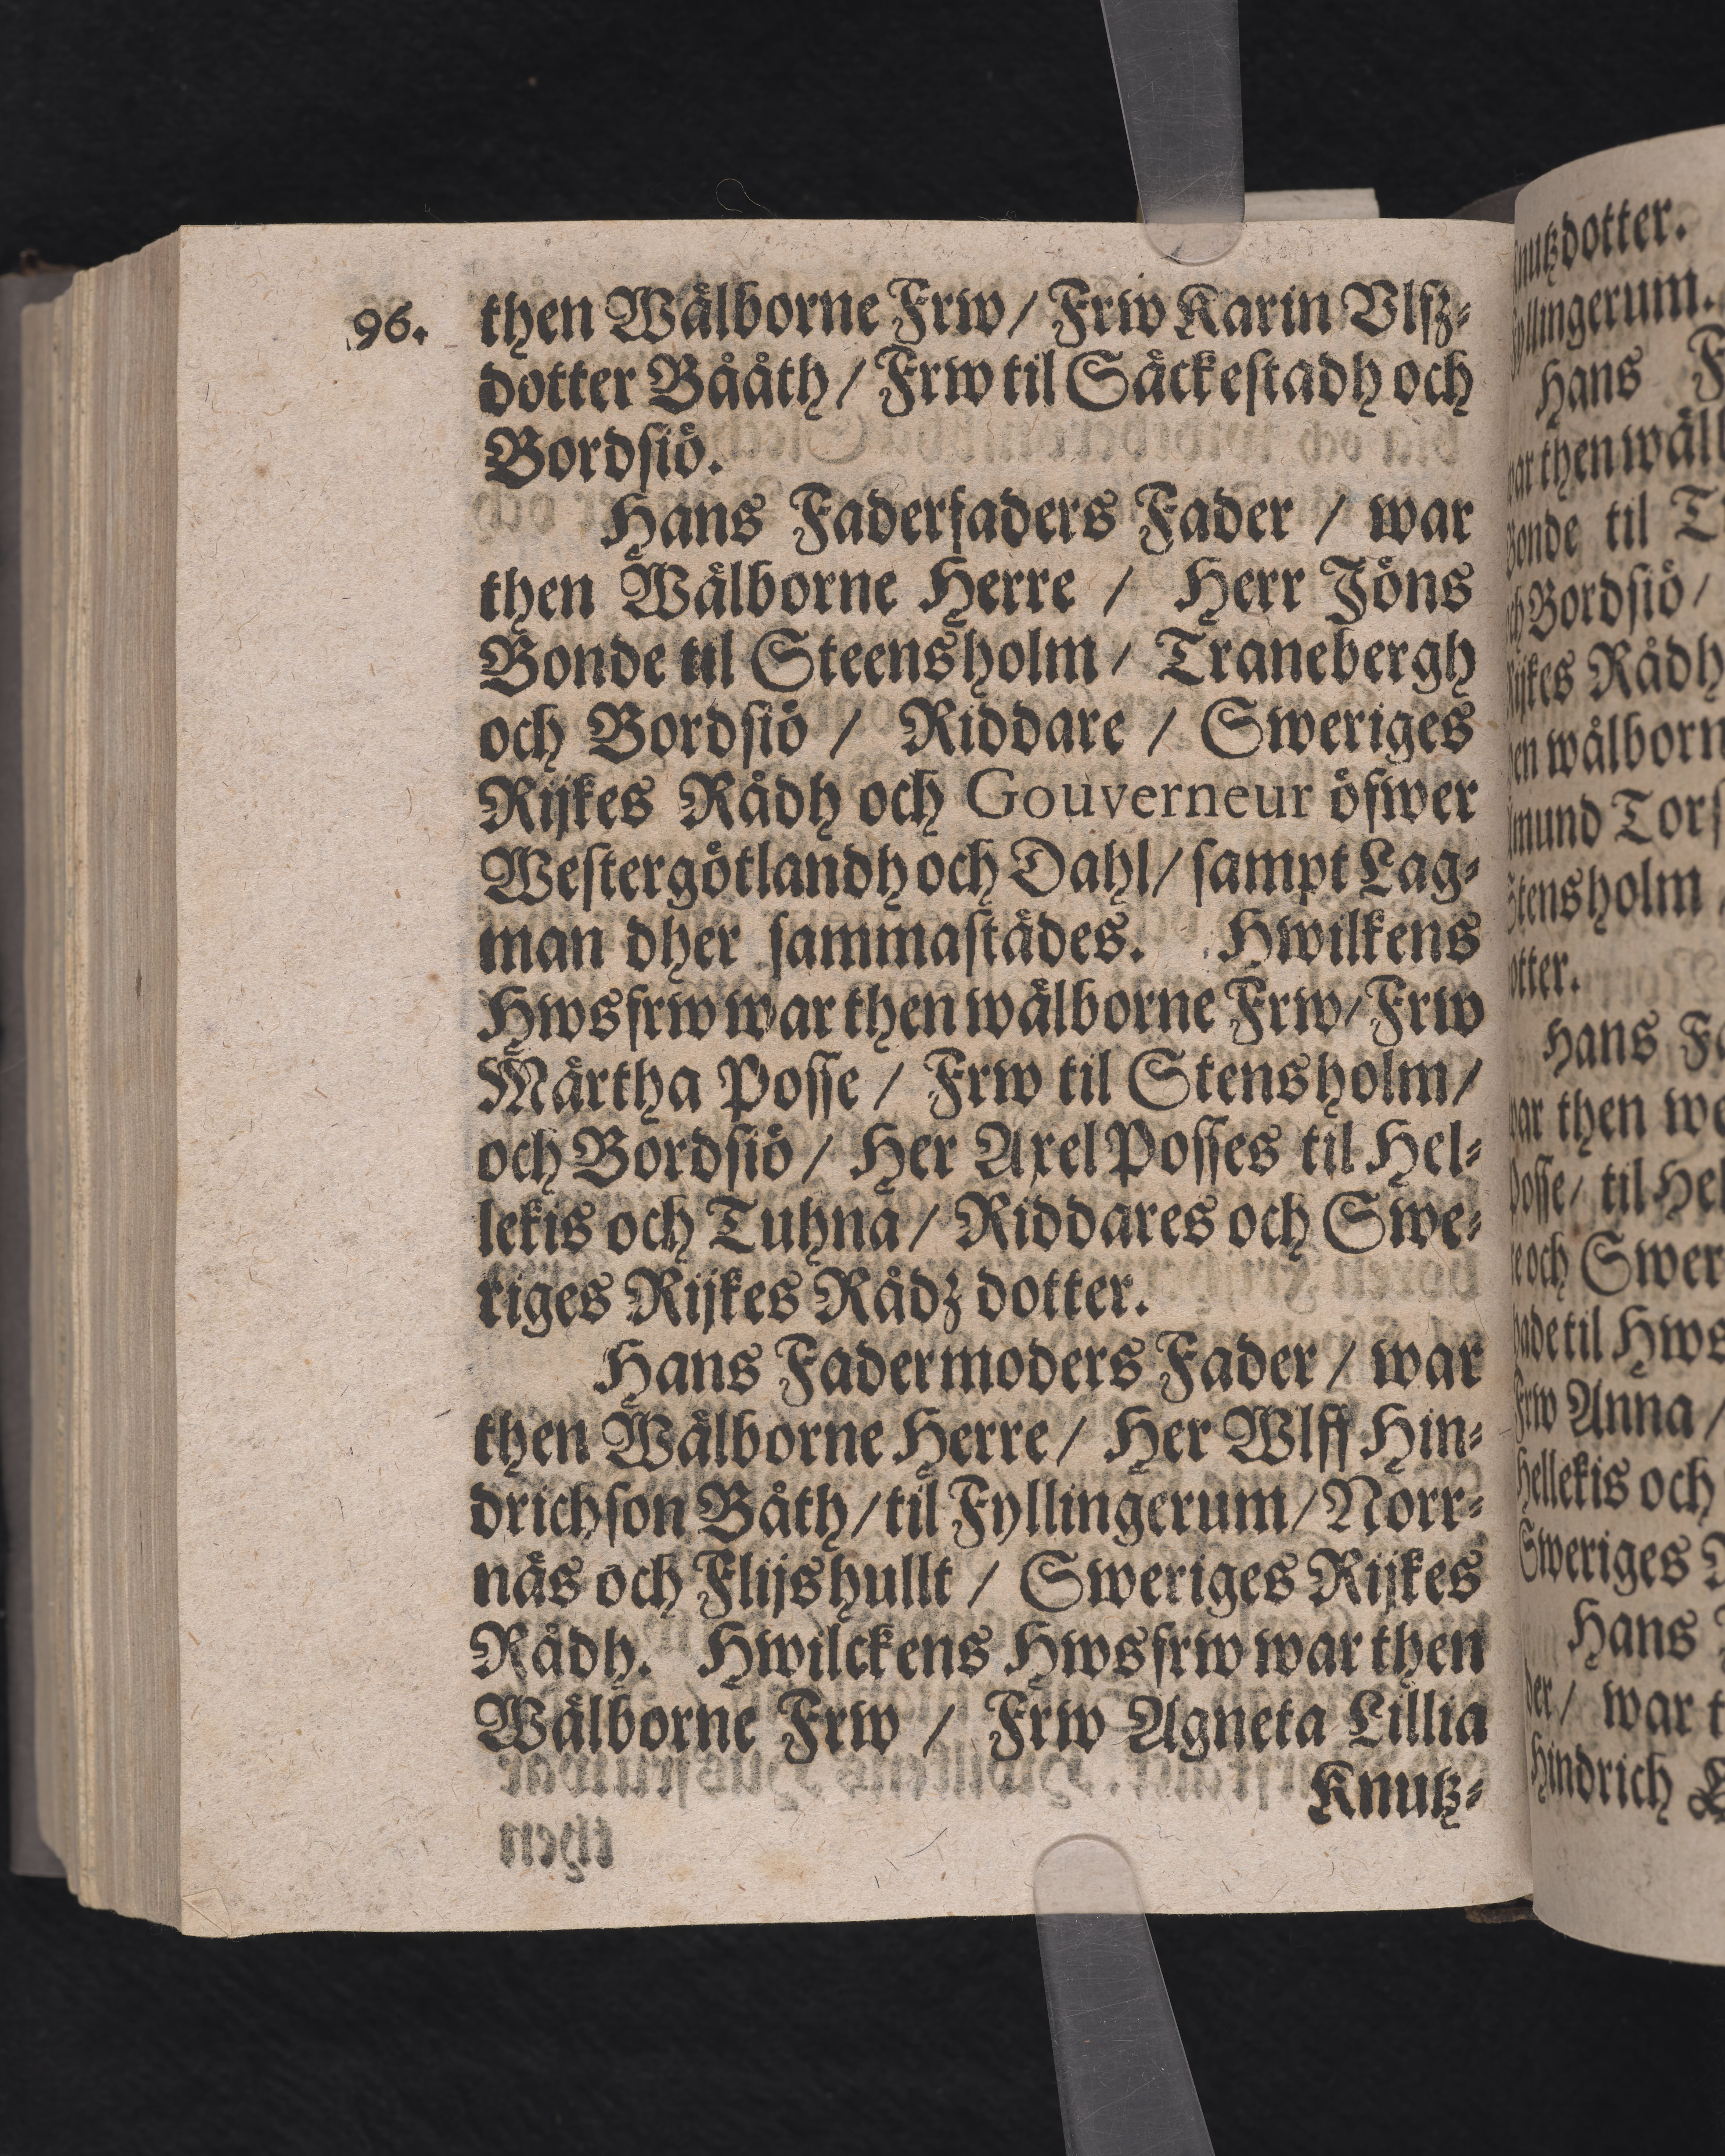 96.
then Wälborne Frw / Frw Karin Vlfz-
dotter Bååth / Frw til Säckestadh och
Bordsiö.
Hans Faderfaders Fader / war
then Wälborne Herre / Herr Jöns
Bonde til Steensholm / Tranebergh
och Bordsiö / Riddare / Sweriges
Rijkes Rådh och Gouverneur öfwer
Westergötlandh och Dahl / sampt Lag-
man dher sammastädes. Hwilkens
Hwsfrw war then wälborne Frw / Frw
Märtha Posse / Frw til Stensholm /
och Bordsiö / Her Axel Posses til Hel-
lekis och Tuhna / Riddares och Swe-
riges Rijkes Rådz dotter.
Hans Fadermoders Fader / war
then Wälborne Herre / Her Wlff Hin-
drichson Båth / til Fyllingerum / Norr-
näs och Flijshullt / Sweriges Rijkes
Rådh. Hwilckens Hwsfrw war then
Wälborne Frw / Frw Agneta Lillia
Knutz-
nutzdotter.
yllingerum.
Hans
then wäl
onde til
Bordsiö /
Rådh
wälborn
mund Tors
tensholm
otter.
Hans
then
osse / til Hel
och Swer
til Hws
Anna /
ellekis och
Sweriges
Hans
der / war
Hindrich